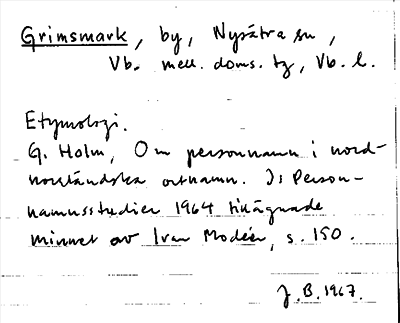 Grimsmark, by, Nysätra sn,
Vb. mell. doms. tg, Vb. l.
Etymologi.
G. Holm, Om personnamn i nord-
norrländska ortnamn. I: Person-
namnsstudier 1964 tillägnade
minnet av Ivar Modéer, s. 150.
J. B. 1967.